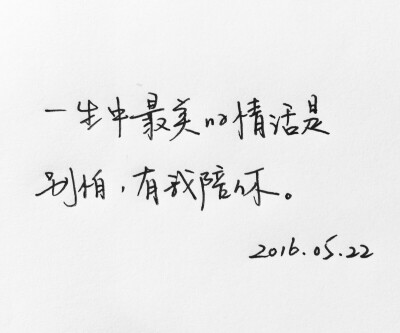 一生中最美的情话是
别怕，有我陪你。
2016.05.22